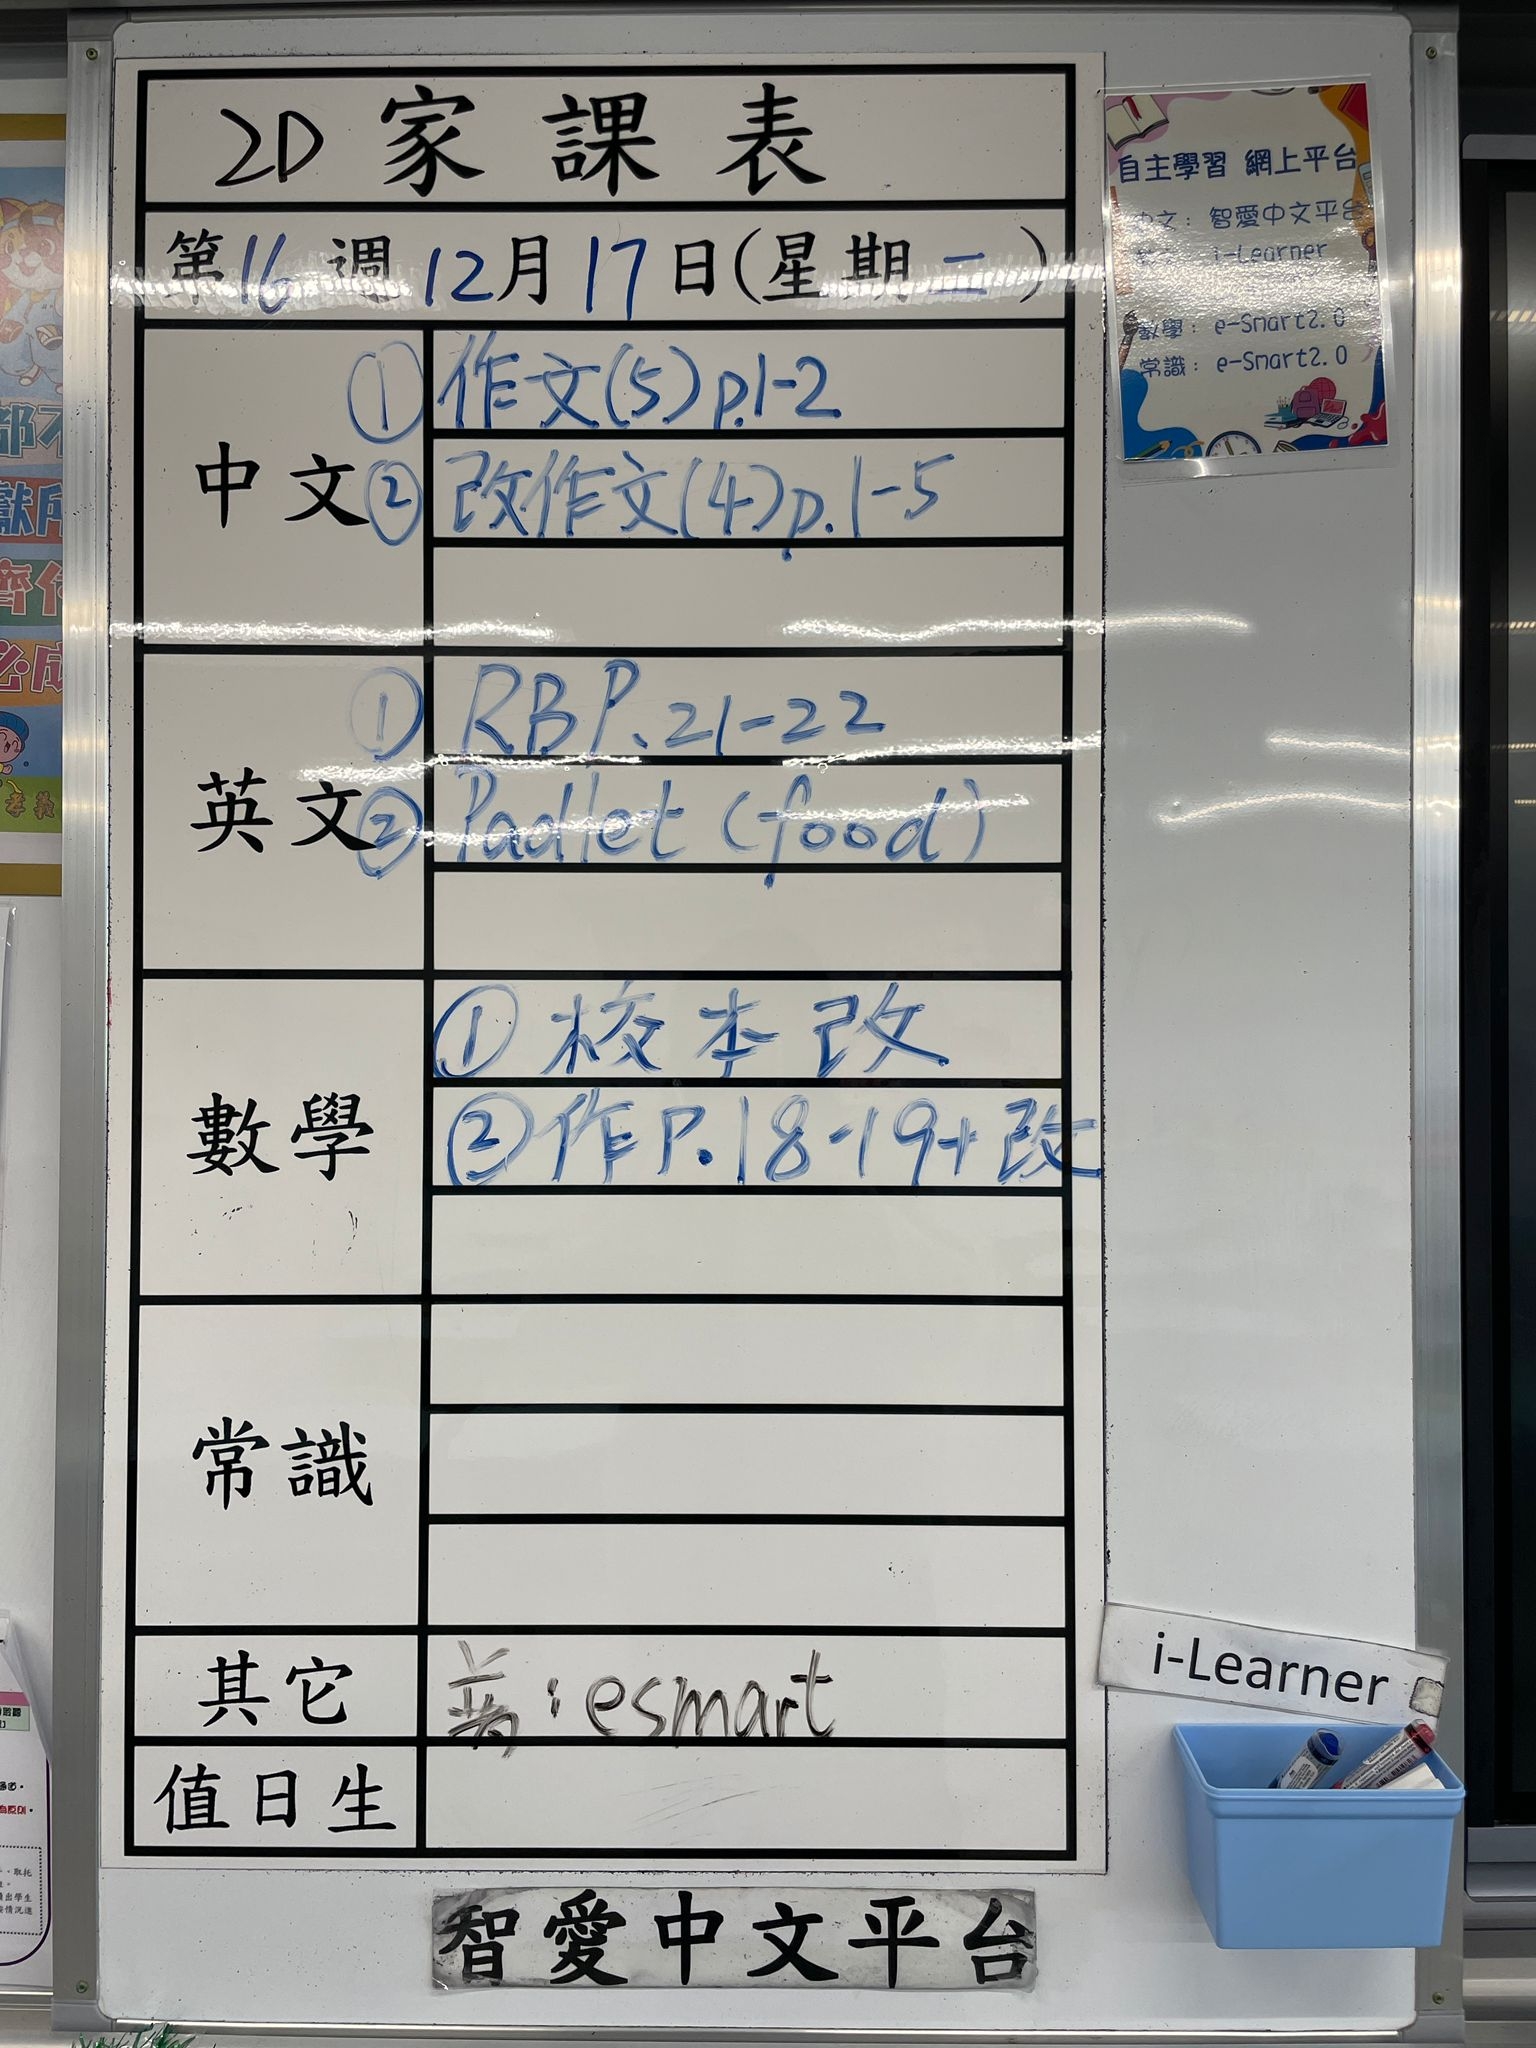 2D 家課表
第16週 12月17日(星期二)
中文
① 作文(5)p.1-2
② 改作文(4)p.1-5
英文
① RB P.21-22
② Padlet (food)
數學
① 校本改
② 作 P.18-19+改
常識
其它
: esmart
值日生
智愛中文平台
自主學習 網上平台
中文: 智愛中文平台
i-Learner
數學: e-Smart2.0
常識: e-Smart2.0
i-Learner